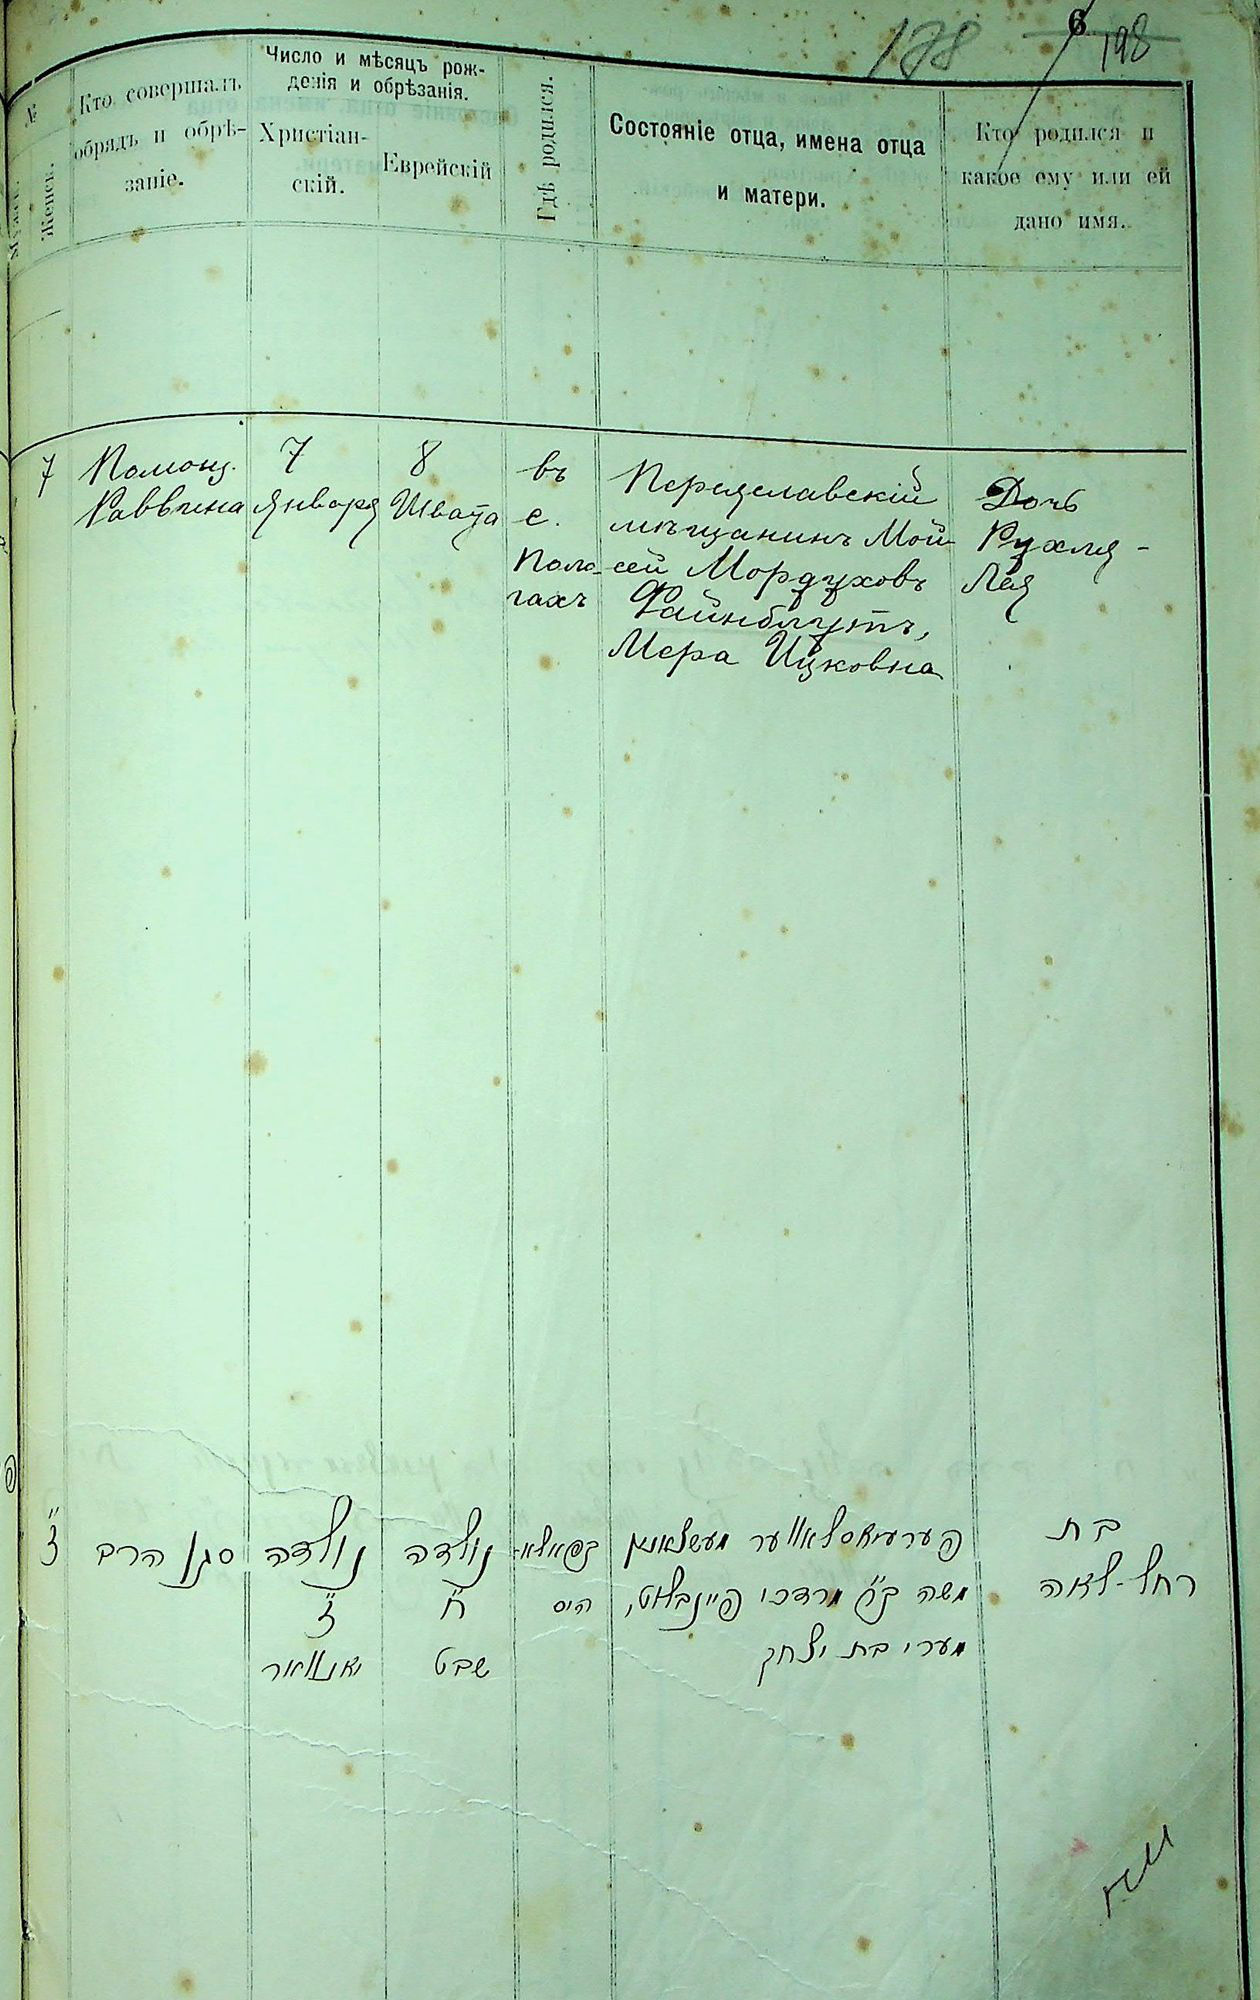 178
6
198
№
Мужск.
Женск.
Кто совершалъ
обрядъ и обрѣ-
заніе.
Число и мѣсяцъ рож-
денія и обрѣзанія.
Христіан-
скій.
Еврейскій
Гдѣ родился.
Состояніе отца, имена отца
и матери.
Кто родился и
какое ему или ей
дано имя.
7
Помощ.
Раввина
7
Января
8
Швата
въ
с.
Поло-
гахъ
Переяславскій
мѣщанинъ Мой-
сей Мордуховъ
Файнблутъ,
Мера Ицковна
Дочь
Рухля -
Лея
ז"
סגן הרב
נולדה
ז"
יאנוואר
נולדה
ח"
שבט
בפאלא-
היס
פערעיאסלאווער מעשצאנין
משה ב"ר מרדכי פיינבלוט,
מערי בת יצחק
בת
רחל-לאה